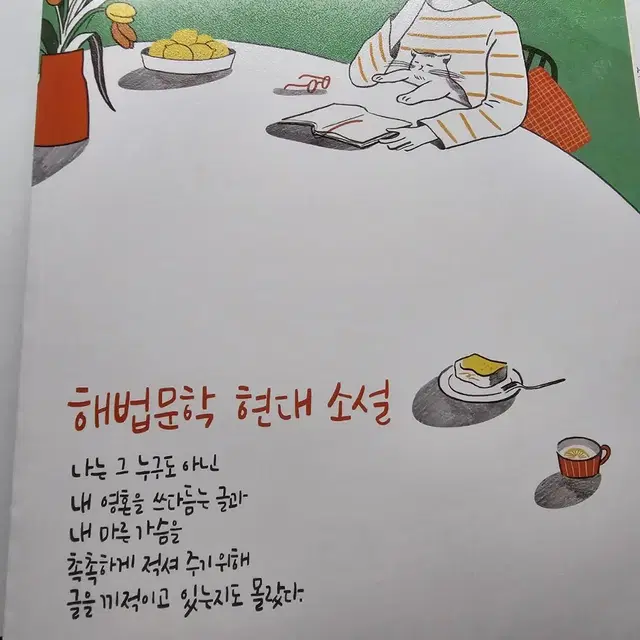 해법문학 현대 소설
나는 그 누구도 아닌
내 영혼을 쓰다듬는 글과
내 마른 가슴을
촉촉하게 적셔 주기 위해
글을 끼적이고 있는지도 몰랐다.